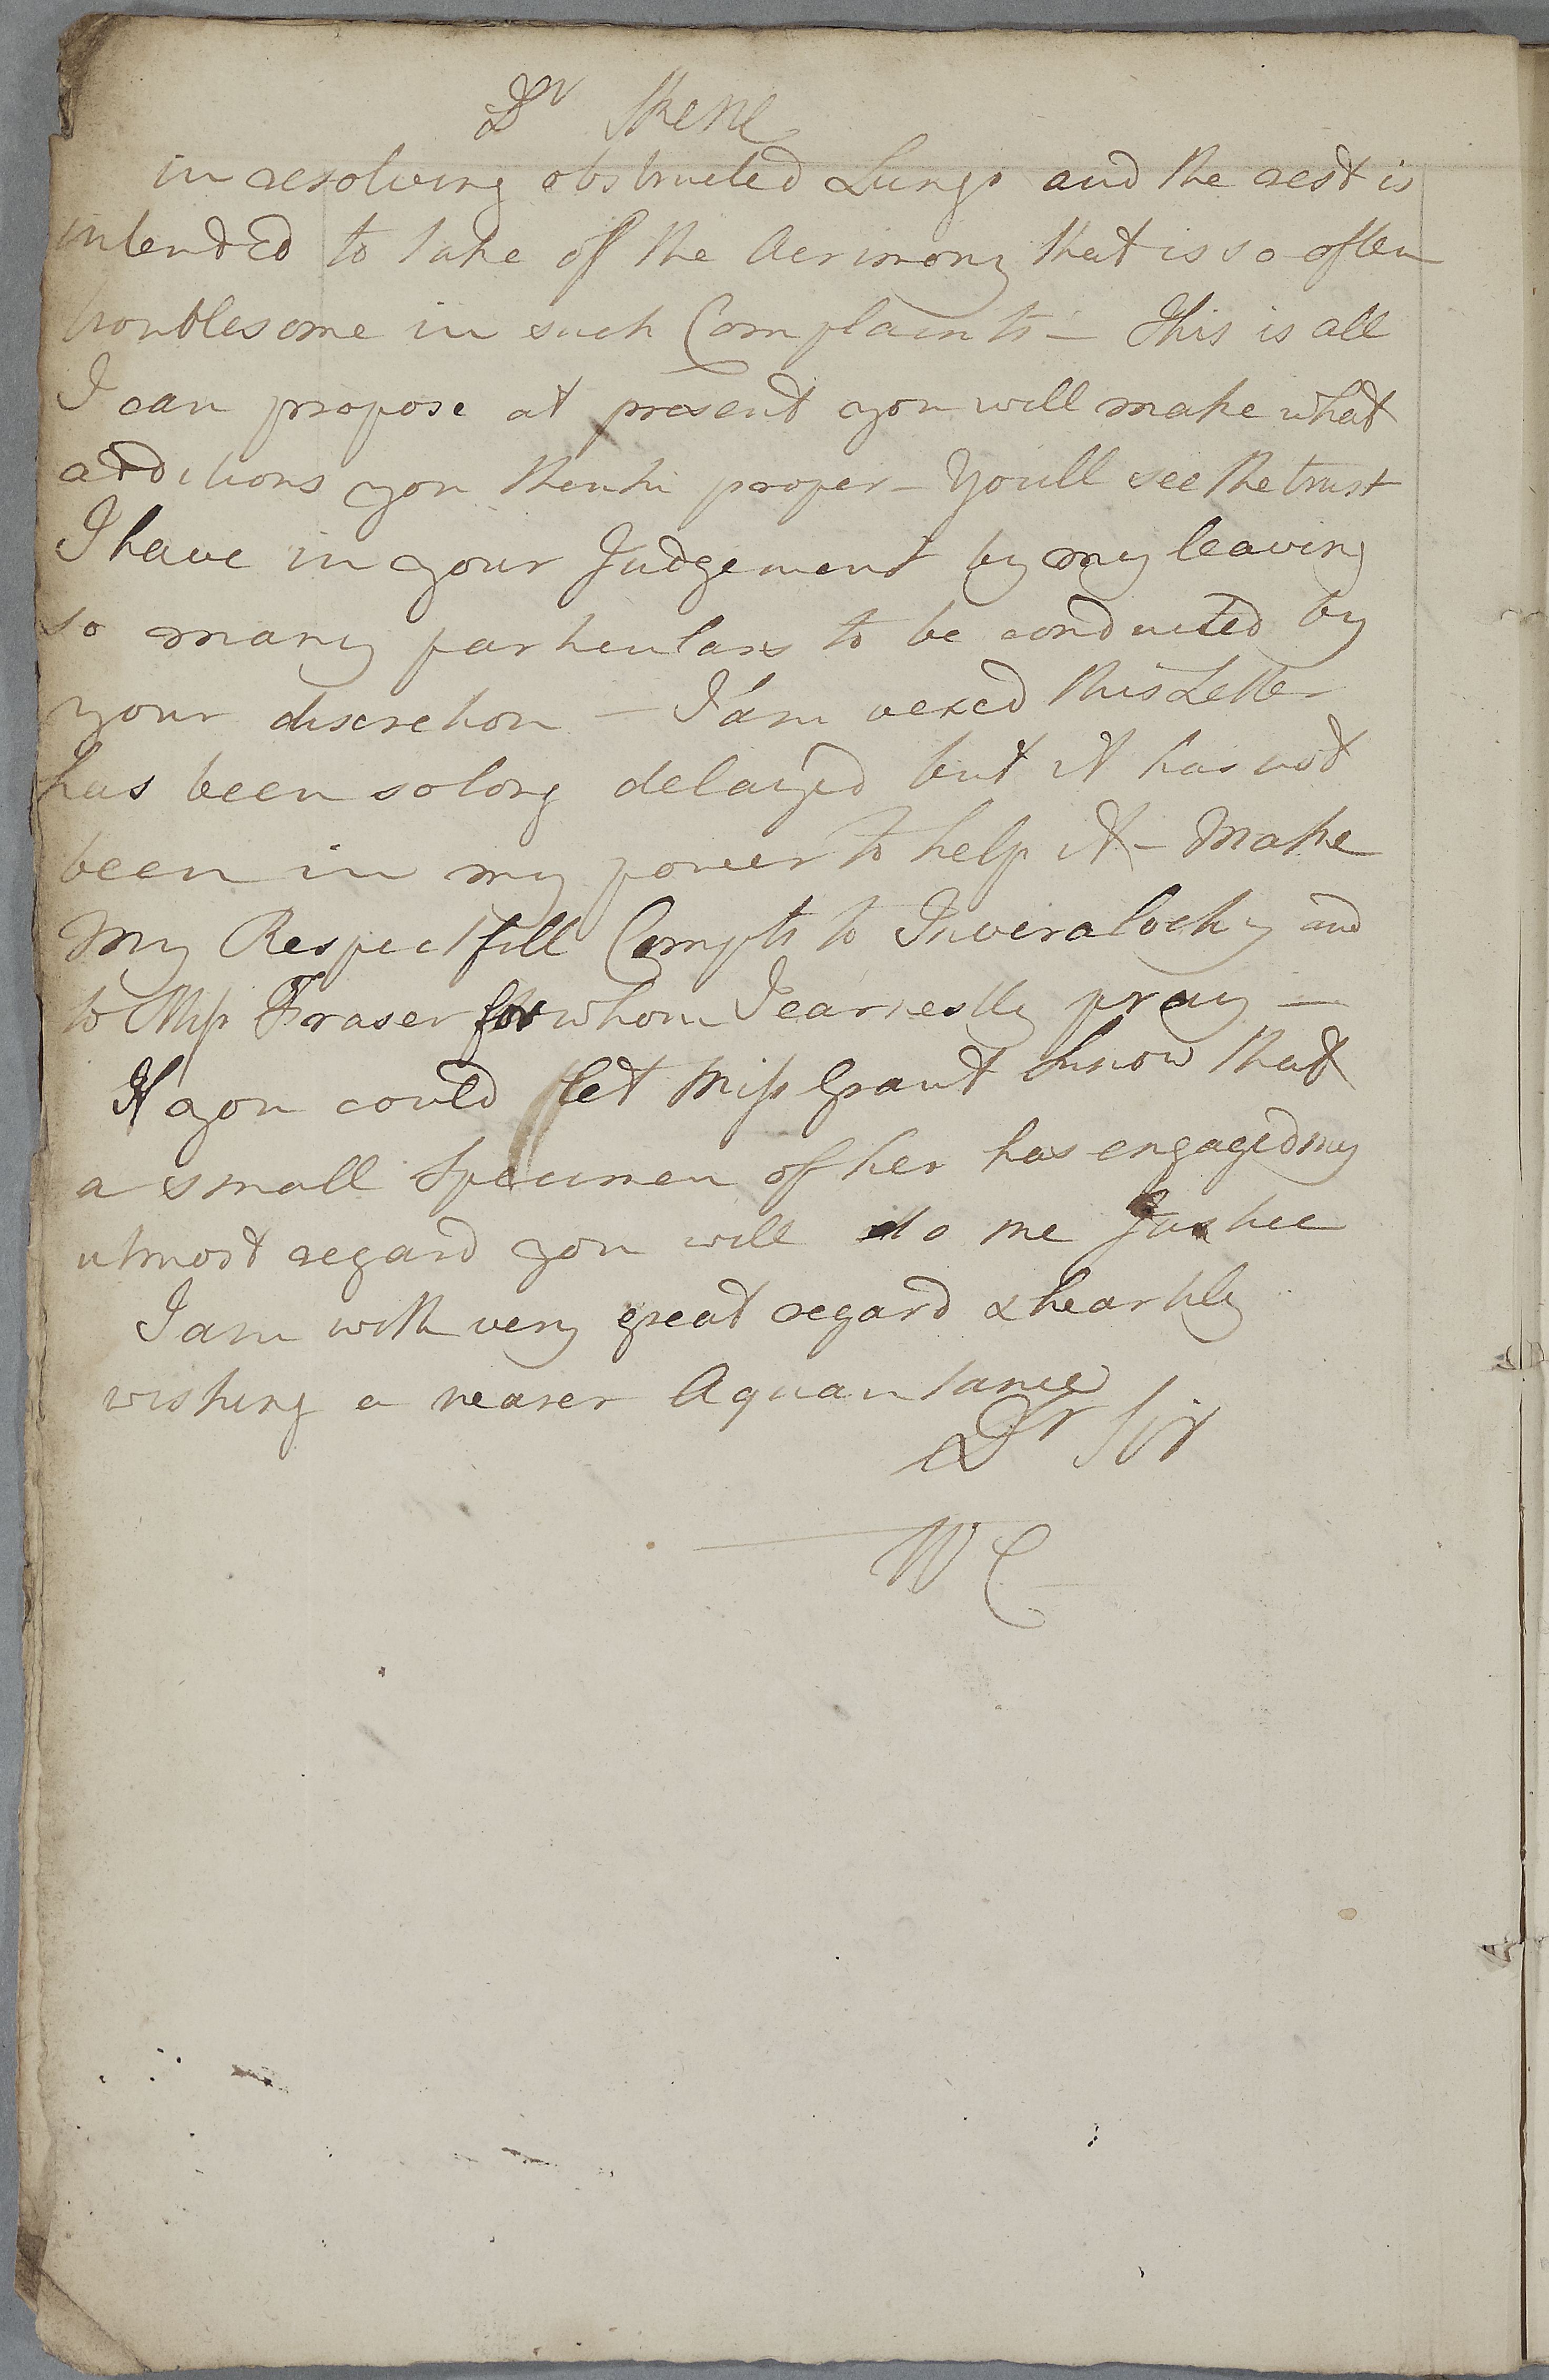 Dr Skene
in resolving obstructed Lungs and the rest is
intended to take of the Acrimony that is so often
troublesome in such Complaints – This is all
I can propose at present you will make what
additions you think proper – You'll see the trust
I have in your Judgement by my leaving
so many particulars to be conducted by
your discretion – I'am vexed this Letter
has been so long delayed but it has not
been in my power to help it – Make
My Respectfull Compts to Inveralochy and
to Miss Fraser for whom I earnestly pray –
If you could let Miss Grant know that
a small Specimen of her has engaged my
utmost regard you will do me Justice
I am with very great regard & heartily
wishing a nearer Aquantance
Dr Sir
W C